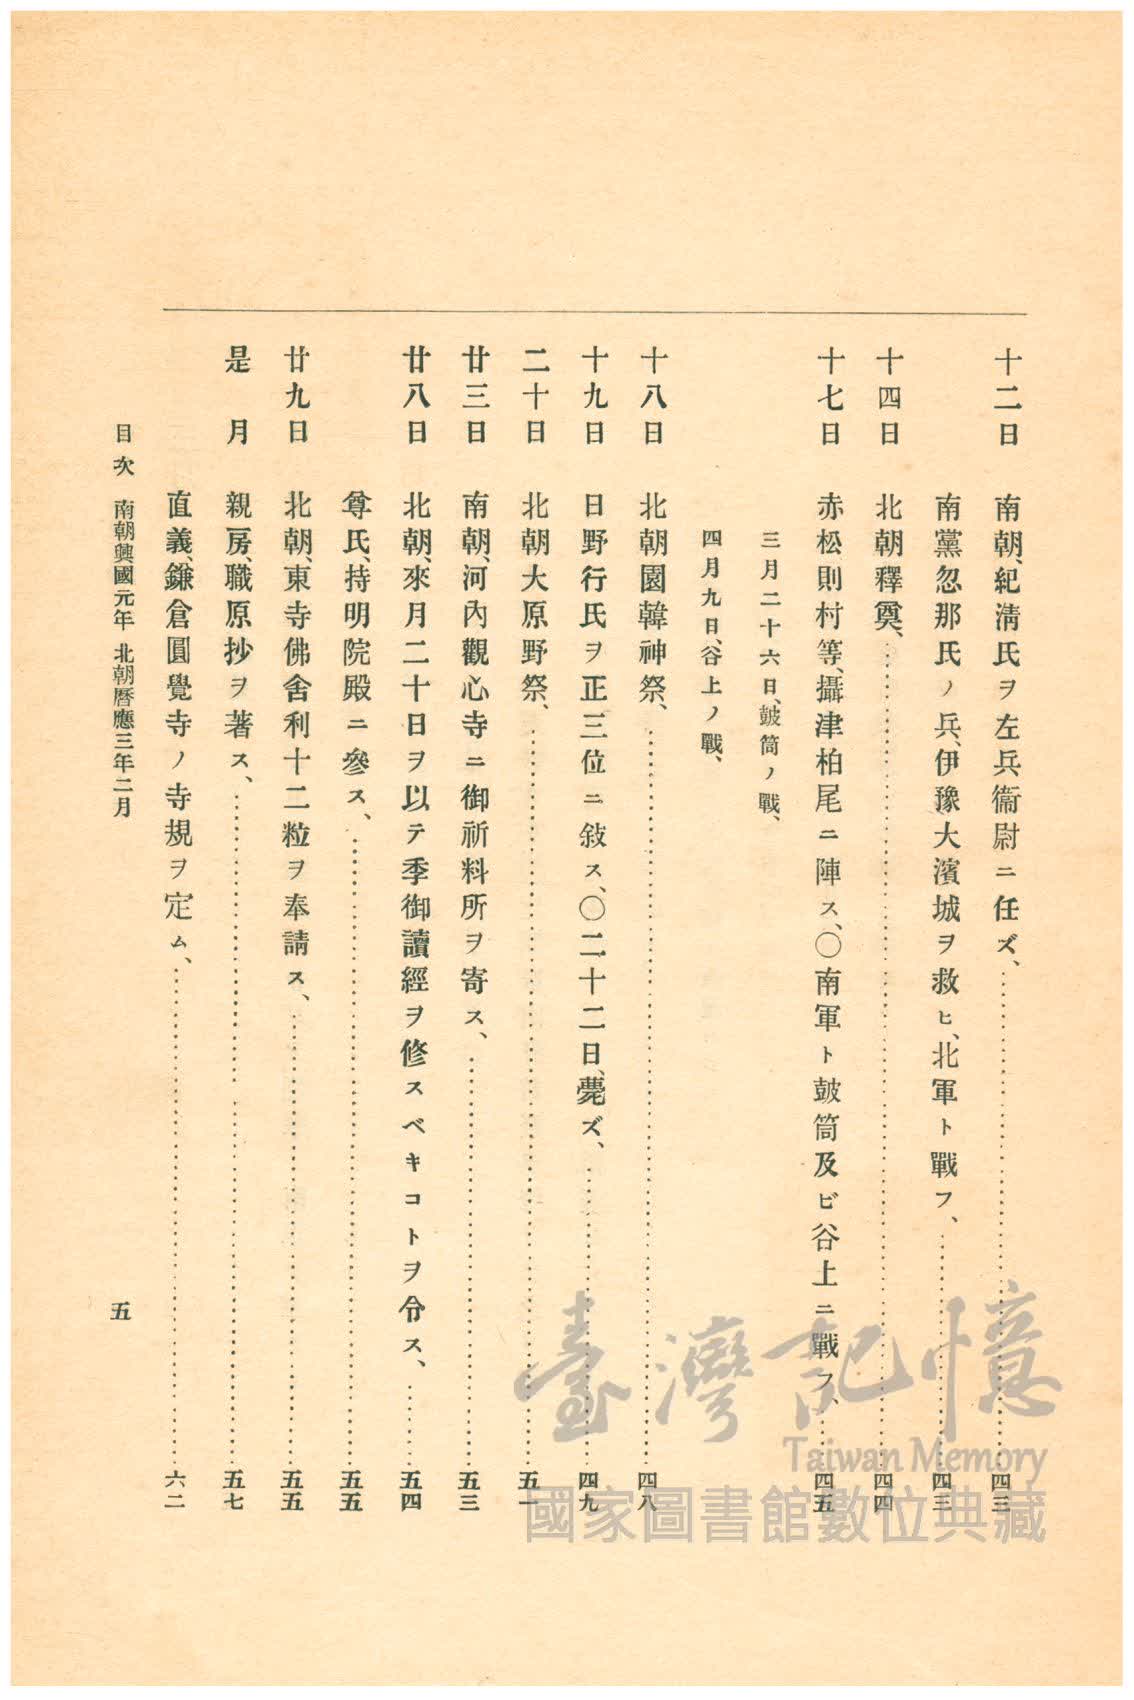 十二日 南朝、紀淸氏ヲ左兵衞尉ニ任ズ、…………四三
南黨忽那氏ノ兵、伊豫大濱城ヲ救ヒ、北軍ト戰フ、…………四三
十四日 北朝釋奠、…………四四
十七日 赤松則村等、攝津柏尾ニ陣ス、〇南軍ト皷筒及ビ谷上ニ戰フ、…………四五
三月二十六日、皷筒ノ戰、
四月九日、谷上ノ戰、
十八日 北朝園韓神祭、…………四八
十九日 日野行氏ヲ正三位ニ敍ス、〇二十二日、薨ズ、…………四九
二十日 北朝大原野祭、…………五一
廿三日 南朝、河內觀心寺ニ御祈料所ヲ寄ス、…………五三
廿八日 北朝、來月二十日ヲ以テ季御讀經ヲ修スベキコトヲ令ス、…………五四
尊氏、持明院殿ニ參ス、…………五五
廿九日 北朝、東寺佛舍利十二粒ヲ奉請ス、…………五五
是月 親房、職原抄ヲ著ス、…………五七
直義、鎌倉圓覺寺ノ寺規ヲ定ム、…………六二
目次 南朝興國元年 北朝曆應三年二月 五
臺灣記憶
Taiwan Memory
國家圖書館數位典藏